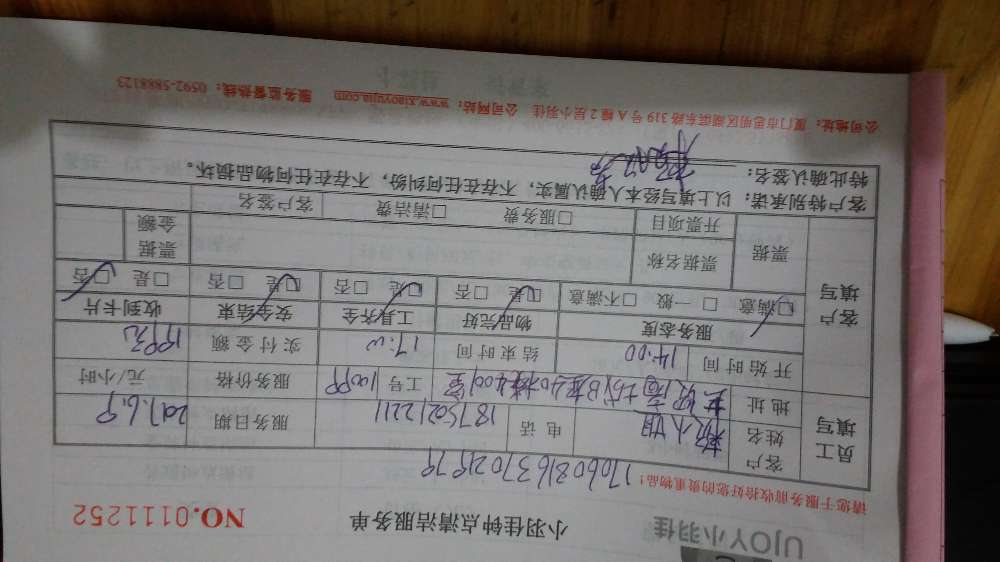 UJOY小羽佳
小羽佳钟点清洁服务单
NO.0111252
请您于服务前收拾好您的贵重物品!
员工填写
客户姓名 小姐 电话 18750212211 服务日期 2017.6.9
地址 工号 服务价格 元/小时
开始时间 14:00 结束时间 17:00 实付金额
客户填写
服务态度 物品完好 工具齐全 安全结束 收到卡片
□满意 □一般 □不满意 □是 □否 □是 □否 □是 □否 □是 □否
票据 票据名称 票据金额
开票项目 □服务费 □清洁费 客户签名
客户特别承诺:以上填写经本人确认属实,不存在任何纠纷,不存在任何物品损坏。
特此确认签名:
公司地址:厦门市思明区湖滨东路319号A幢2层小羽佳 公司网站:www.xiaoyujia.com 服务监督热线:0592-5888123